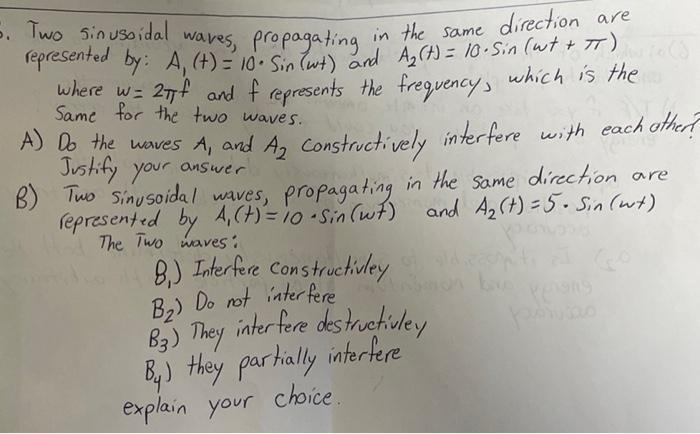 3. Two sinusoidal waves, propagating in the same direction are
represented by: A₁(t) = 10 · Sin(wt) and A₂(t) = 10 · Sin(wt + π)
where w = 2πf and f represents the frequency, which is the
Same for the two waves.
A) Do the waves A₁ and A₂ constructively interfere with each other?
Justify your answer
B) Two sinusoidal waves, propagating in the same direction are
represented by A₁(t) = 10 · Sin(wt) and A₂(t) = 5 · Sin(wt)
The Two waves:
B₁) Interfere constructivley
B₂) Do not interfere
B₃) They interfere destructivley
B₄) they partially interfere
explain your choice.